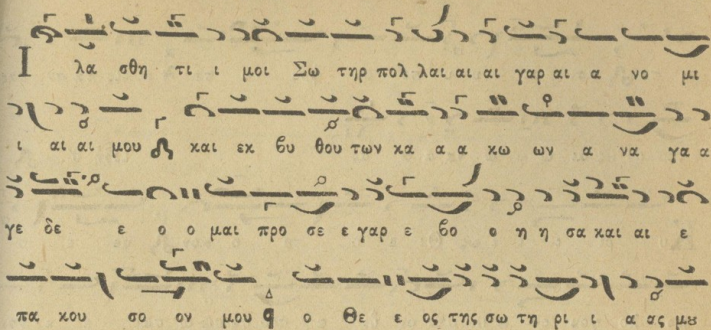 Ι λα σθη τι ι μοι Σω τηρ πολ λαι αι αι γαρ αι α νο μι
ι αι αι μου και εκ βυ θου των κα α α κω ων α να γα α
γε δε ε ο ο μαι προ σε ε γαρ ε βο ο η η σα και αι ε
πα κου σο ον μου ο Θε ε ος της σω τη ρι ι α ας μȣ